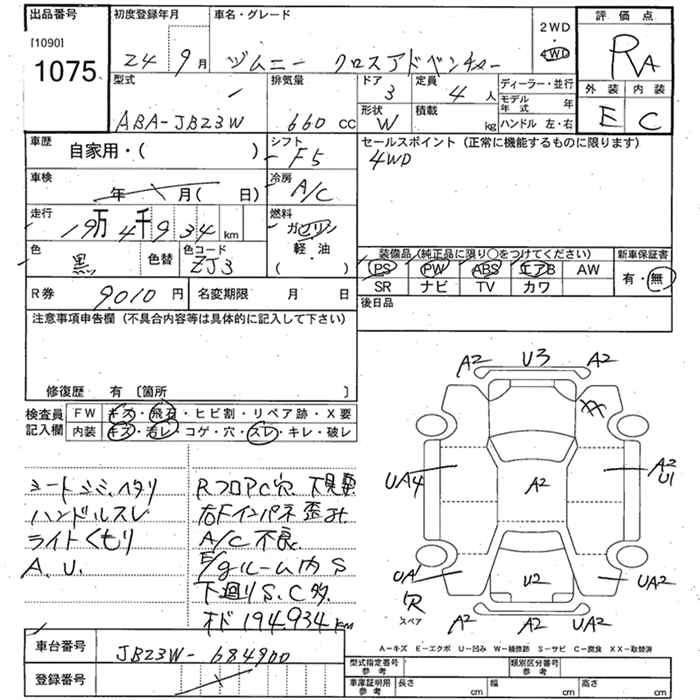 出品番号
[1090]
1075
初度登録年月
24年9月
車名・グレード
ジムニー クロスアドベンチャー
2WD
・
4WD
評価点
RA
外装 内装
E C
型式
ABA-JB23W
排気量
660 cc
ドア
3
形状
W
定員
4人
積載
kg
ディーラー・並行
モデル年式 年
ハンドル 左・右
車歴
自家用・( )
シフト
F5
セールスポイント (正常に機能するものに限ります)
4WD
車検
年 月( 日)
冷房
A/C
走行
19万4千934 km
燃料
ガソリン
軽・油
( )
色
黒
色替
色コード
ZJ3
装備品 (純正品に限り○をつけてください)
新車保証書
PS PW ABS エアB AW
SR ナビ TV カワ
有・無
R券
9010円
名変期限 月 日
後日品
注意事項申告欄 (不具合内容等は具体的に記入して下さい)
修復歴 有 [箇所 ]
検査員記入欄
FW キズ・飛石・ヒビ割・リペア跡・X要
内装 キズ・汚レ・コゲ・穴・スレ・キレ・破レ
シートシミ、ヘタリ
ハンドルスレ
ライトくもり
A.U.
RフロアC穴 下見要
右Fインパネ歪み
A/C不良
E/gルーム内S
下廻りS.C多
オド194934km
A2 U3 A2
XX
UA4
A2
A2
U1
UA
U2
UA2
R
スペア
A2 A2 UA2
A-キズ E-エクボ U-凹み W-補修跡 S-サビ C-腐食 XX-取替済
車台番号
JB23W-684900
登録番号
型式指定番号
参考
類別区分番号
参考
車庫証明用
参考
長さ cm
幅 cm
高さ cm